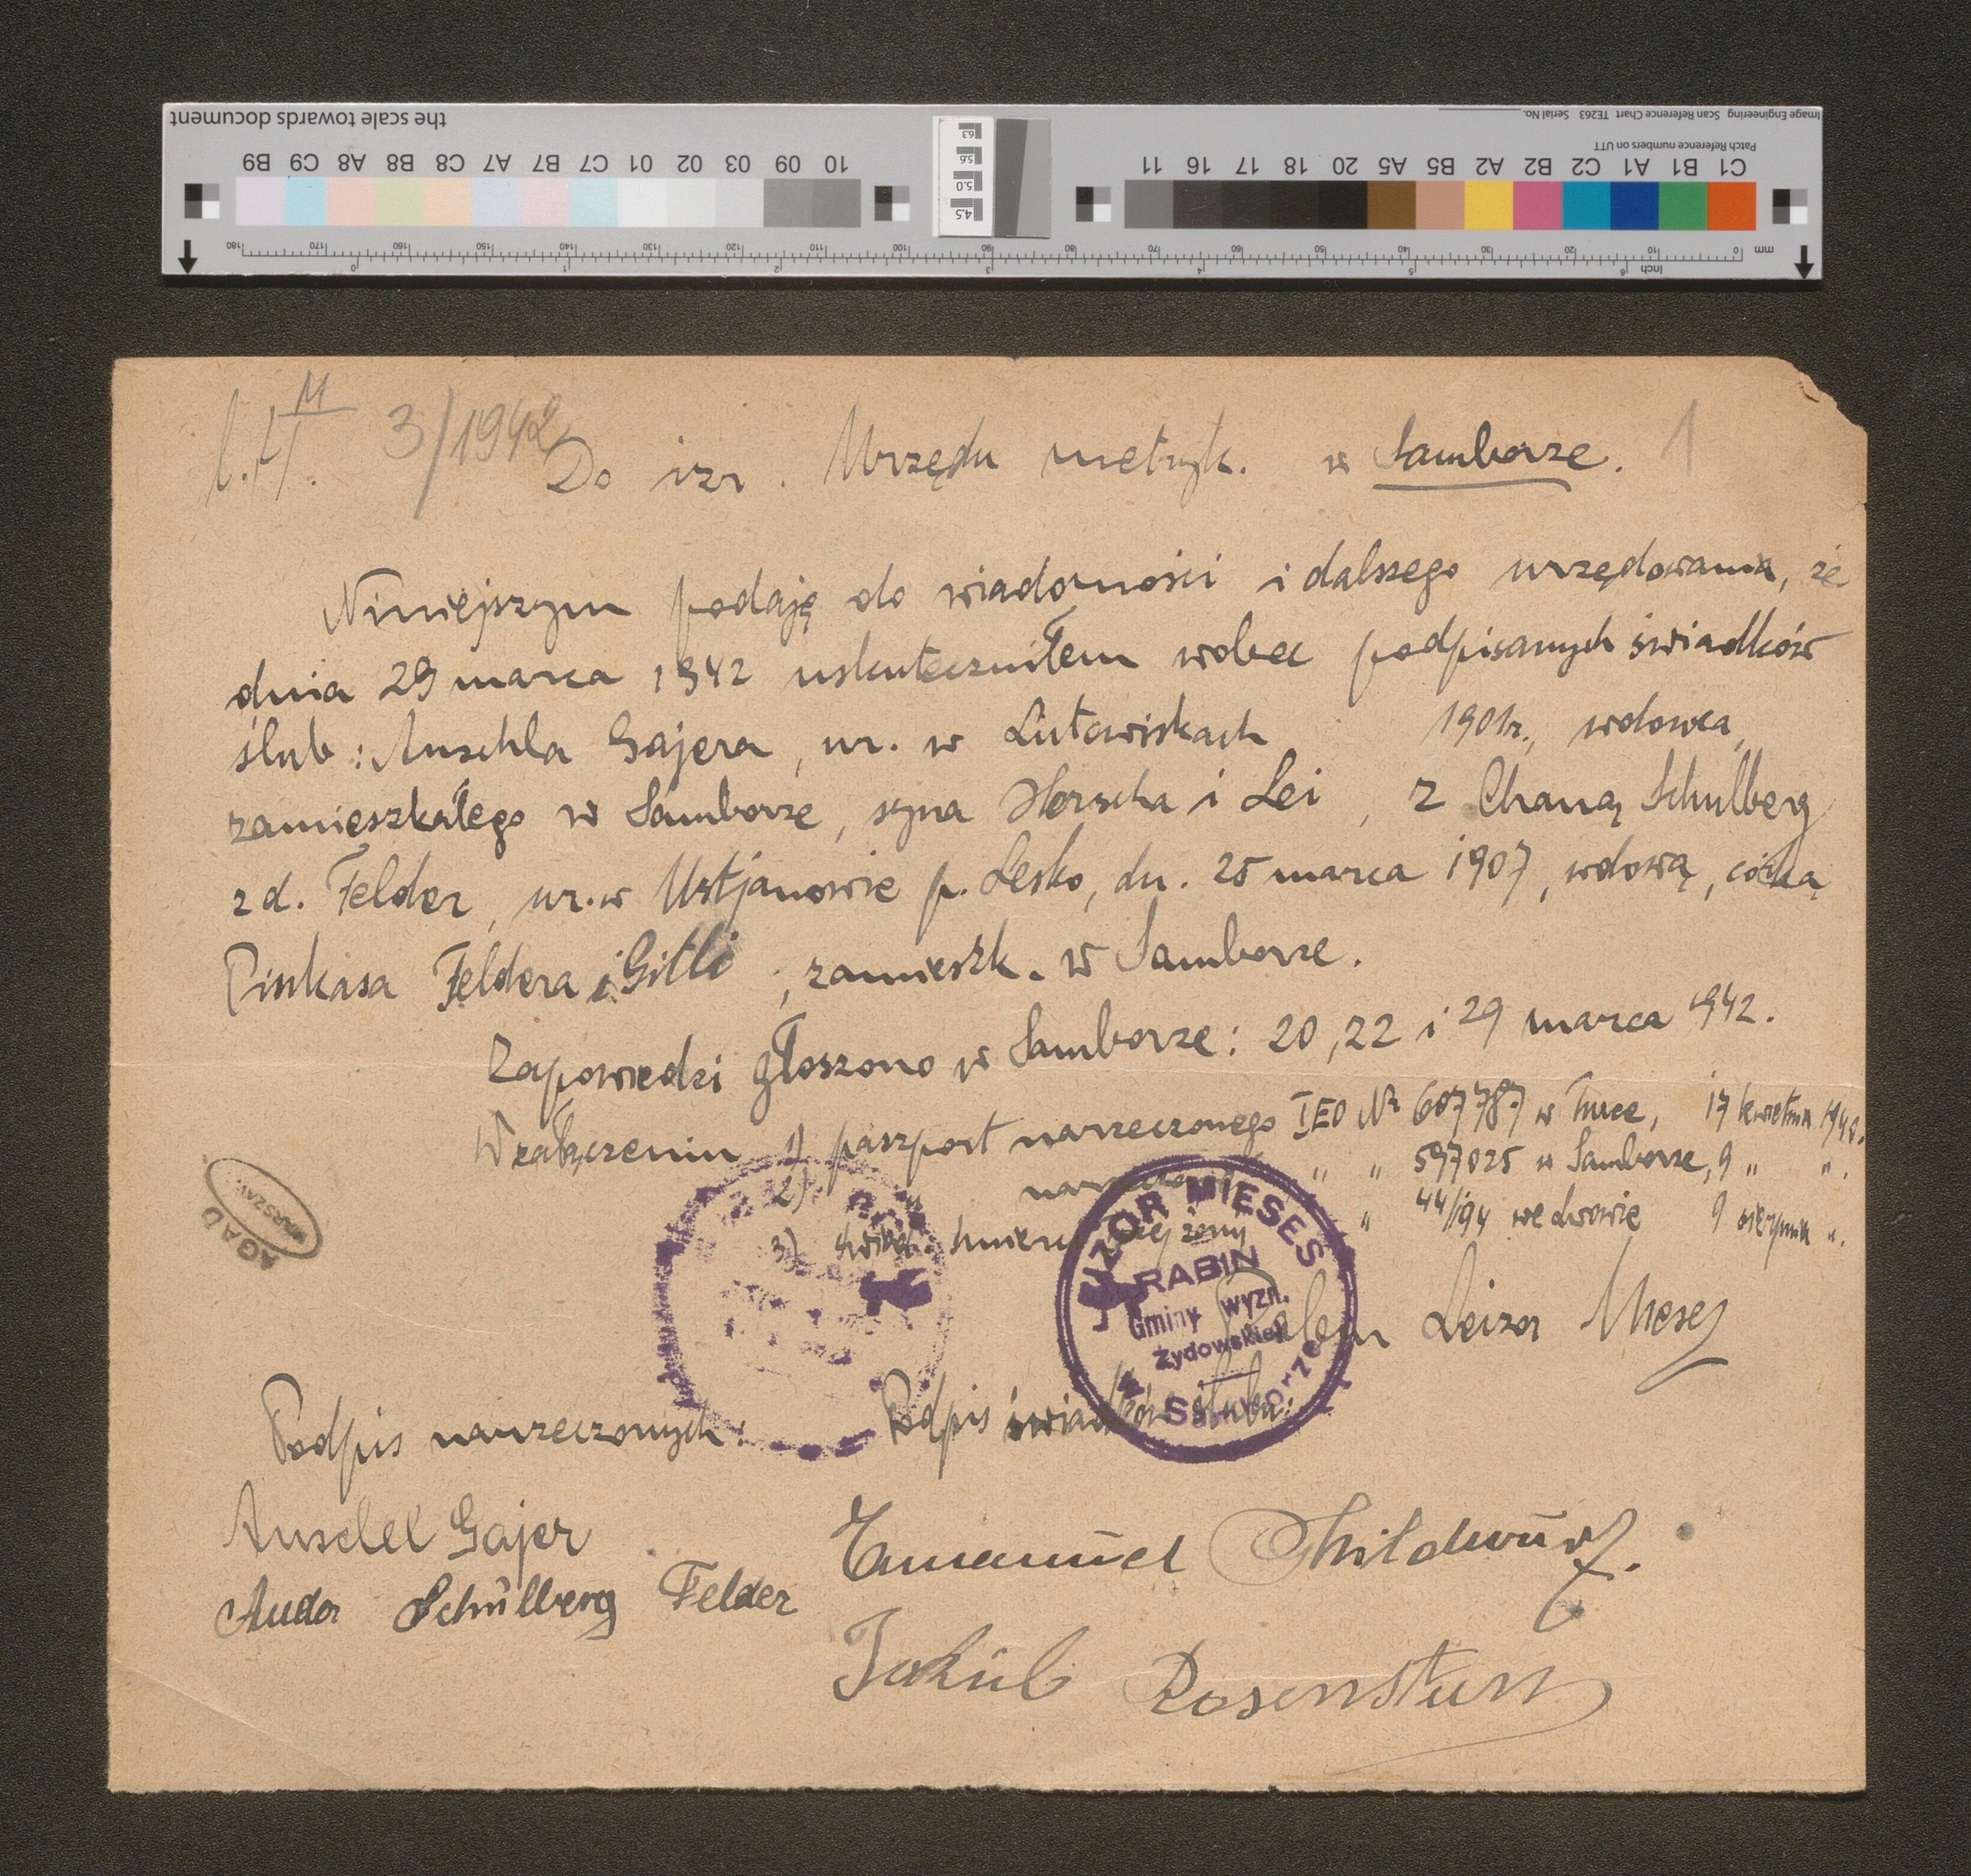 the scale towards document
Image Engineering Scan Reference Chart TE263 Serial No.
Patch Reference numbers on UTT
B9 C9 A8 B8 C8 A7 B7 C7 01 02 03 09 10
11 16 17 18 19 20 A5 B5 A2 B2 C2 A1 B1 C1
3/1942
Do izr. Urzędu metryk. w Samborze. 1
Niniejszym podaję do wiadomości i dalszego urzędowania, że
dnia 29 marca 1942 uskuteczniłem wobec podpisanych świadków
ślub: Anschla Gajera, ur. w Lutowiskach 1901 r., wdowca,
zamieszkałego w Samborze, syna Herscha i Lei, z Chaną Schulberg
z d. Felder, ur. w Ustjanowie p. Lesko, dn. 25 marca 1907, wdową, córką
Pinkasa Feldera i Gitli, zamieszk. w Samborze.
Zapowiedzi głoszono w Samborze: 20, 22 i 29 marca 1942.
W załączeniu 1) paszport narzeczonego IEO Nr 607787 w Turce, 17 kwietnia 1940.
2) " narzeczonej " " 597025 w Samborze, 9 " ".
3) śmierci żony " 44/194 we Lwowie 9 sierpnia ".
AGAD
WARSZAWA
LEIZOR MIESES
RABIN
Gminy wyzn.
Żydowskiej
w Samborze
Leizor Mieses
Podpis narzeczonych: Podpis świadków ślubu:
Anschel Gajer
Emanuel
Schulberg Felder
Jakub Rosenstern